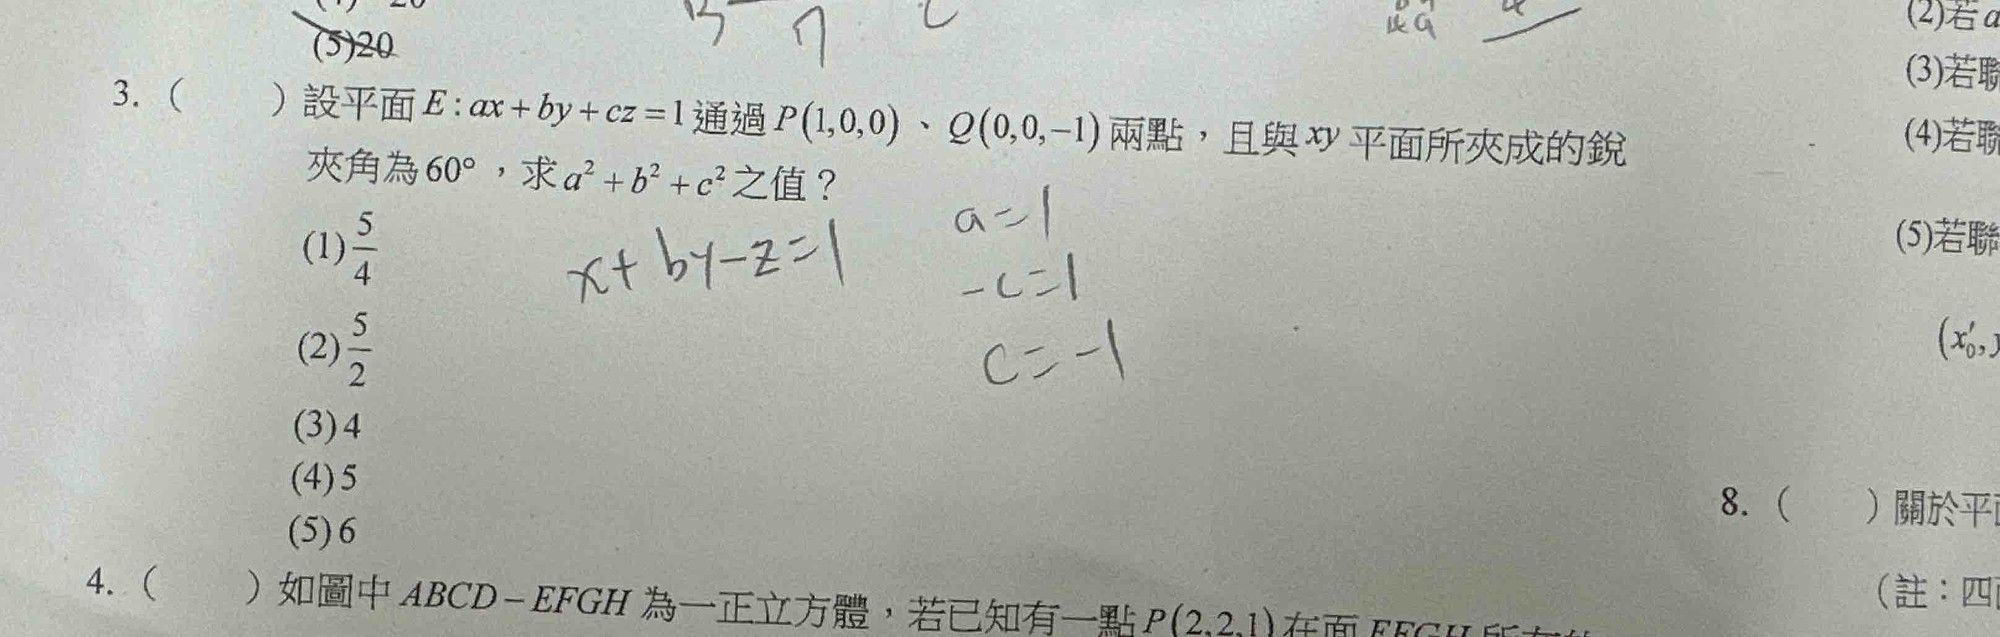 (5)20
3. (　　) 設平面 E : ax + by + cz = 1 通過 P(1,0,0)、Q(0,0,−1) 兩點，且與 xy 平面所夾成的銳
夾角為 60°，求 a² + b² + c² 之值？
(1) 5/4
x + by − z = 1
a = 1
−c = 1
c = −1
(2) 5/2
(3) 4
(4) 5
(5) 6
4. (　　) 如圖中 ABCD − EFGH 為一正立方體，若已知有一點 P(2,2,1) 在面 EFGH
(2)若 a
(3)若聯
(4)若聯
(5)若聯
(x′₀,
8. (　　) 關於平面
(註：四面